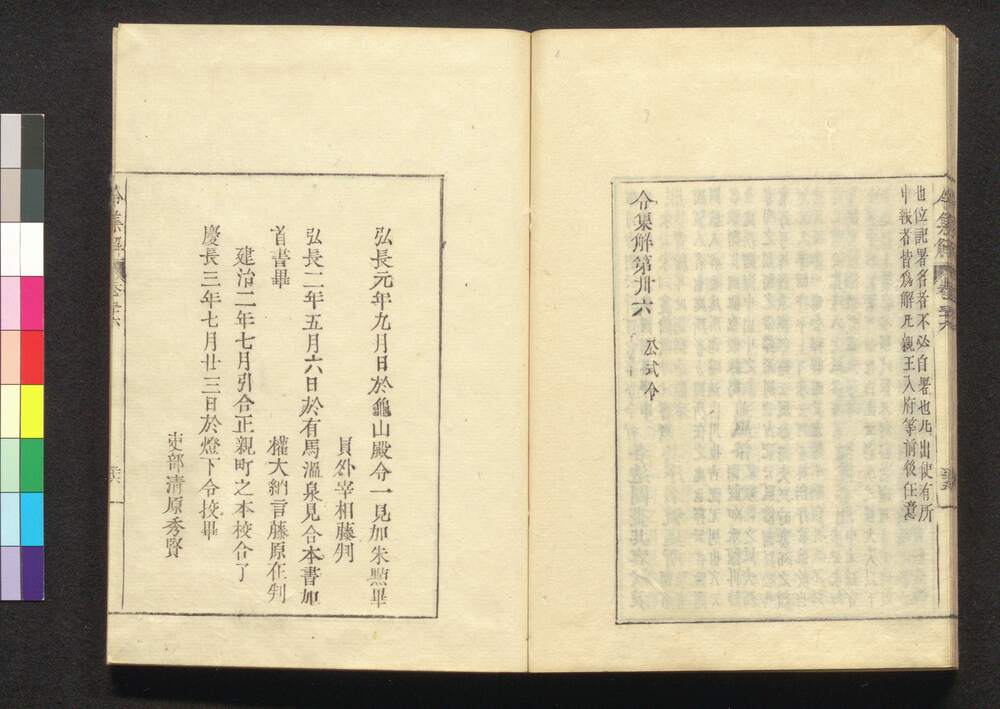 令集解 卷三十六
也位記署名者不必自署也凡出使有所
申報者皆爲解凡親王入府等前後任意
令集解第卅六 公式令
弘長元年九月日於龜山殿令一見加朱點畢
員外宰相藤判
弘長二年五月六日於有馬溫泉見合本書加
首書畢
權大納言藤原在判
建治二年七月引合正親町之本校合了
慶長三年七月廿三日於燈下令挍畢
吏部清原秀賢
令集解 卷三十六